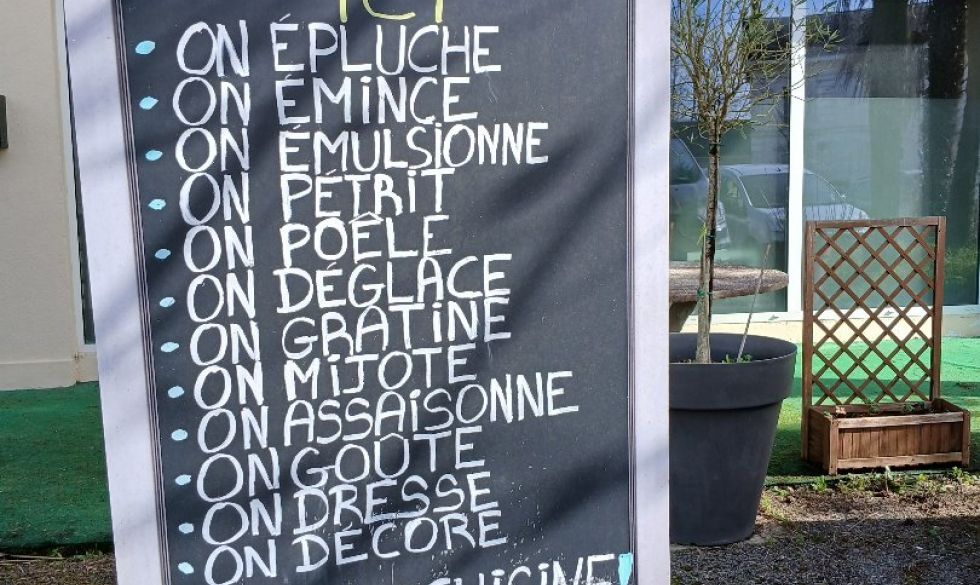 ICI
• ON ÉPLUCHE
• ON ÉMINCE
• ON ÉMULSIONNE
• ON PÉTRIT
• ON POÊLE
• ON DÉGLACE
• ON GRATINE
• ON MIJOTE
• ON ASSAISONNE
• ON GOÛTE
• ON DRESSE
• ON DÉCORE
CUISINE!